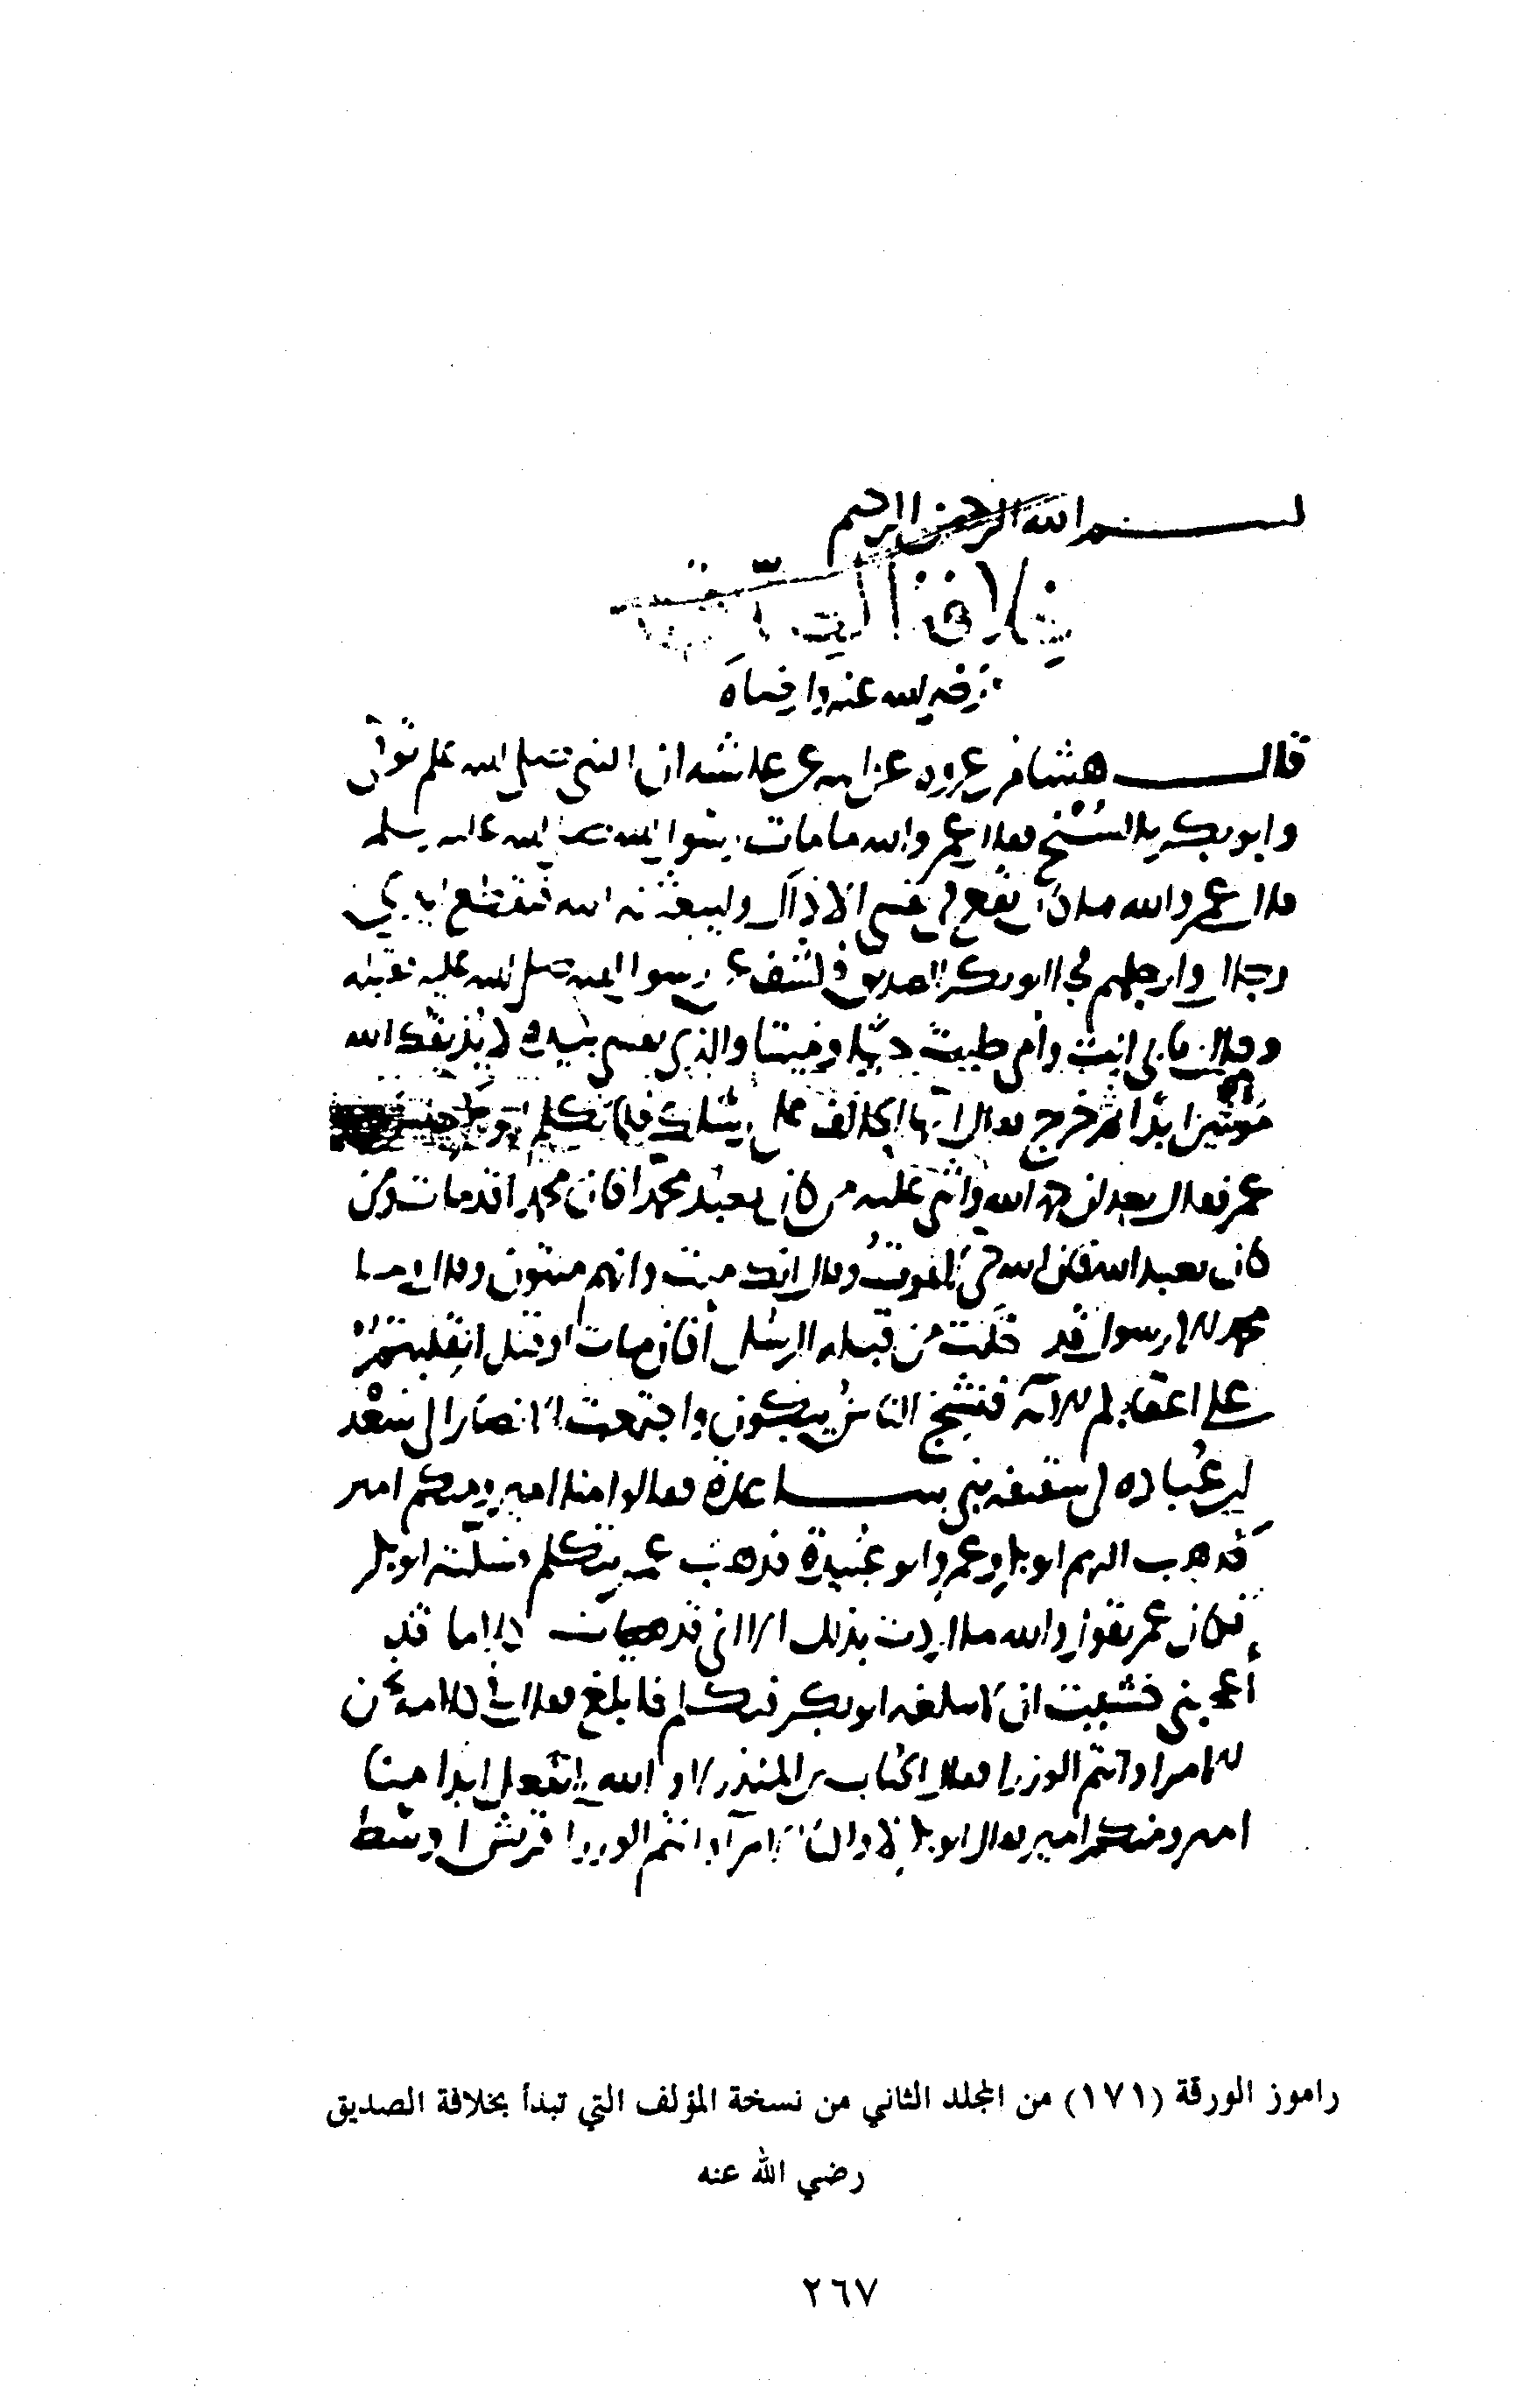 بسم الله الرحمن الرحيم
خلافة الصديق
رضي الله عنه وارضاه
قال هشام بن عروه عن ابيه عن عائشه ان النبي صلى الله عليه وسلم توفي
وابو بكر بالسنح فقال عمر والله ما مات رسول الله صلى الله عليه وسلم
قال عمر والله ما كان يقع في نفسي الا ذاك وليبعثنه الله فيقطع ايدي
رجال وارجلهم فجا ابو بكر الصديق فكشف عن رسول الله صلى الله عليه فقبله
وقال بابي انت وأمي طبت حيا وميتا والذي نفسي بيده لا يذيقك الله
موتتين ابدا ثم خرج فقال ايها الحالف على رسلك فلما تكلم ابو بكر جلس
عمر فقال بعد ان حمد الله واثنى عليه من كان يعبد محمدا فان محمدا قد مات ومن
كان يعبد الله فان الله حي لا يموت وقال انك ميت وانهم ميتون وقال وما
محمد الا رسول قد خلت من قبله الرسل أفان مات او قتل انقلبتم
على اعقابكم الآية فنشج الناس يبكون واجتمعت الانصار الى سعد
ابن عباده في سقيفه بني ساعدة فقالوا منا امير ومنكم امير
فذهب اليهم ابو بكر وعمر وابو عبيدة فذهب عمر يتكلم فسكته ابو بكر
فكان عمر يقول والله ما اردت بذلك الا اني قد هيات كلاما قد
أعجبني خشيت ان لا يبلغه ابو بكر فتكلم فابلغ فقال في كلامه نحن
الامرا وانتم الوزرا فقال الحباب بن المنذر لا والله لا نفعل ابدا منا
امير ومنكم امير فقال ابو بكر لا ولكنا الامرا وانتم الوزرا قريش اوسط
راموز الورقة (١٧١) من المجلد الثاني من نسخة المؤلف التي تبدأ بخلافة الصديق
رضي الله عنه
٢٦٧